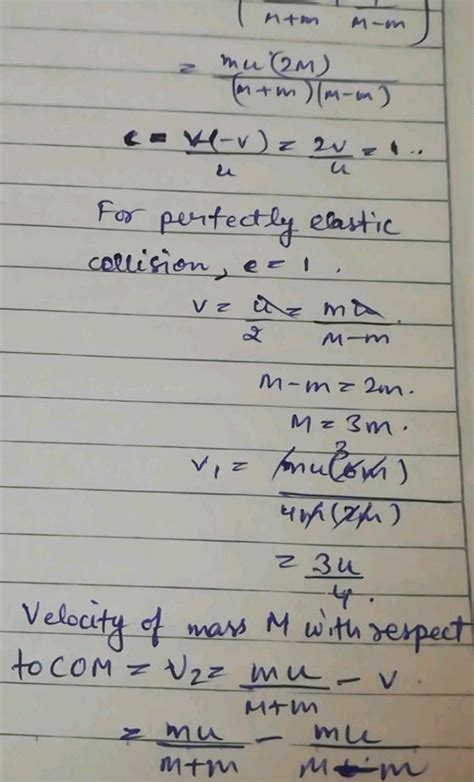 M+m M-m
= mu(2M) / (M+m)(M-m)
e = v-(-v) / u = 2v / u = 1 ..
For perfectly elastic
collision, e = 1 .
v = u / 2 = mu / M-m .
M-m = 2m .
M = 3m .
v₁ = mu(6m) 3 / 4m(2m)
= 3u / 4 .
Velocity of mass M with respect
to COM = v₂ = mu / M+m - v
= mu / M+m - mu / M-m